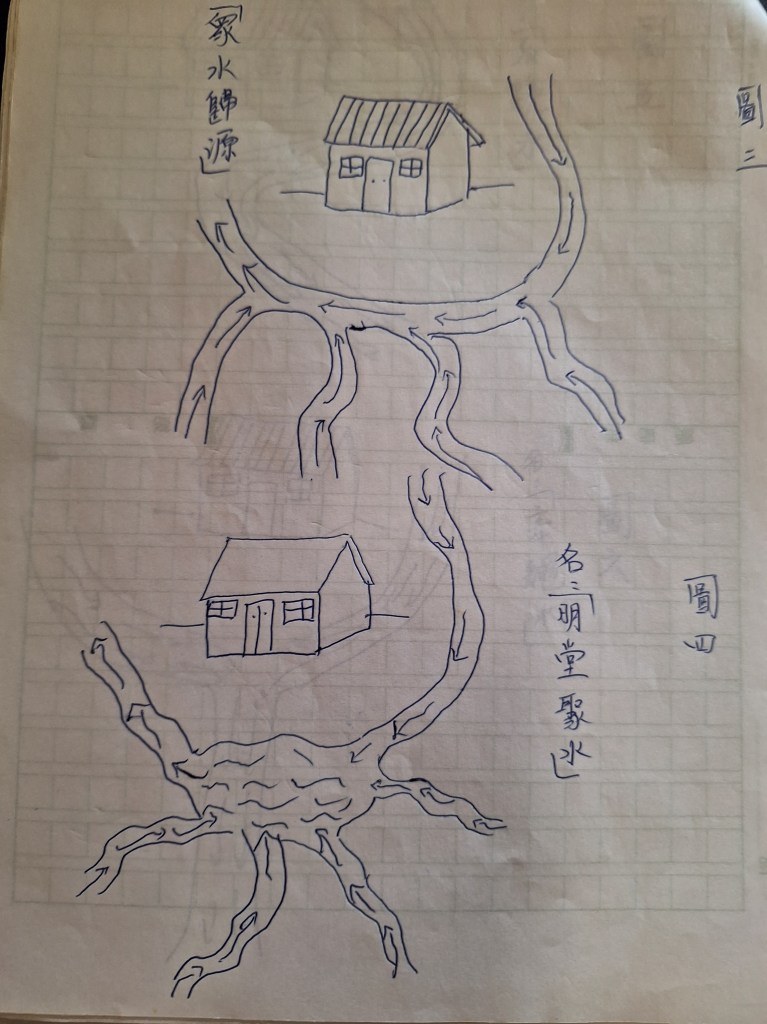 圖三
「眾水歸源」
圖四
名:「明堂聚水」